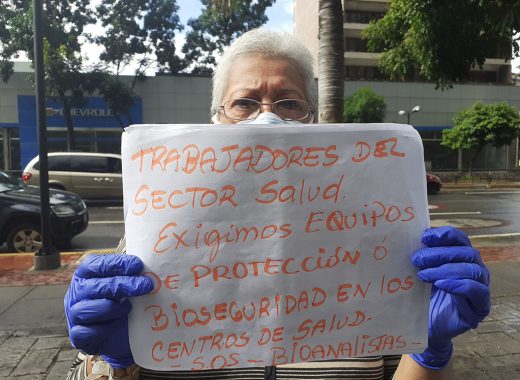 CHEVROLET
TRABAJADORES DEL
SECTOR SALUD.
EXIGIMOS EQUIPOS
DE PROTECCIÓN Ó
BIOSEGURIDAD EN LOS
CENTROS DE SALUD.
- S.O.S - BIOANALISTAS -